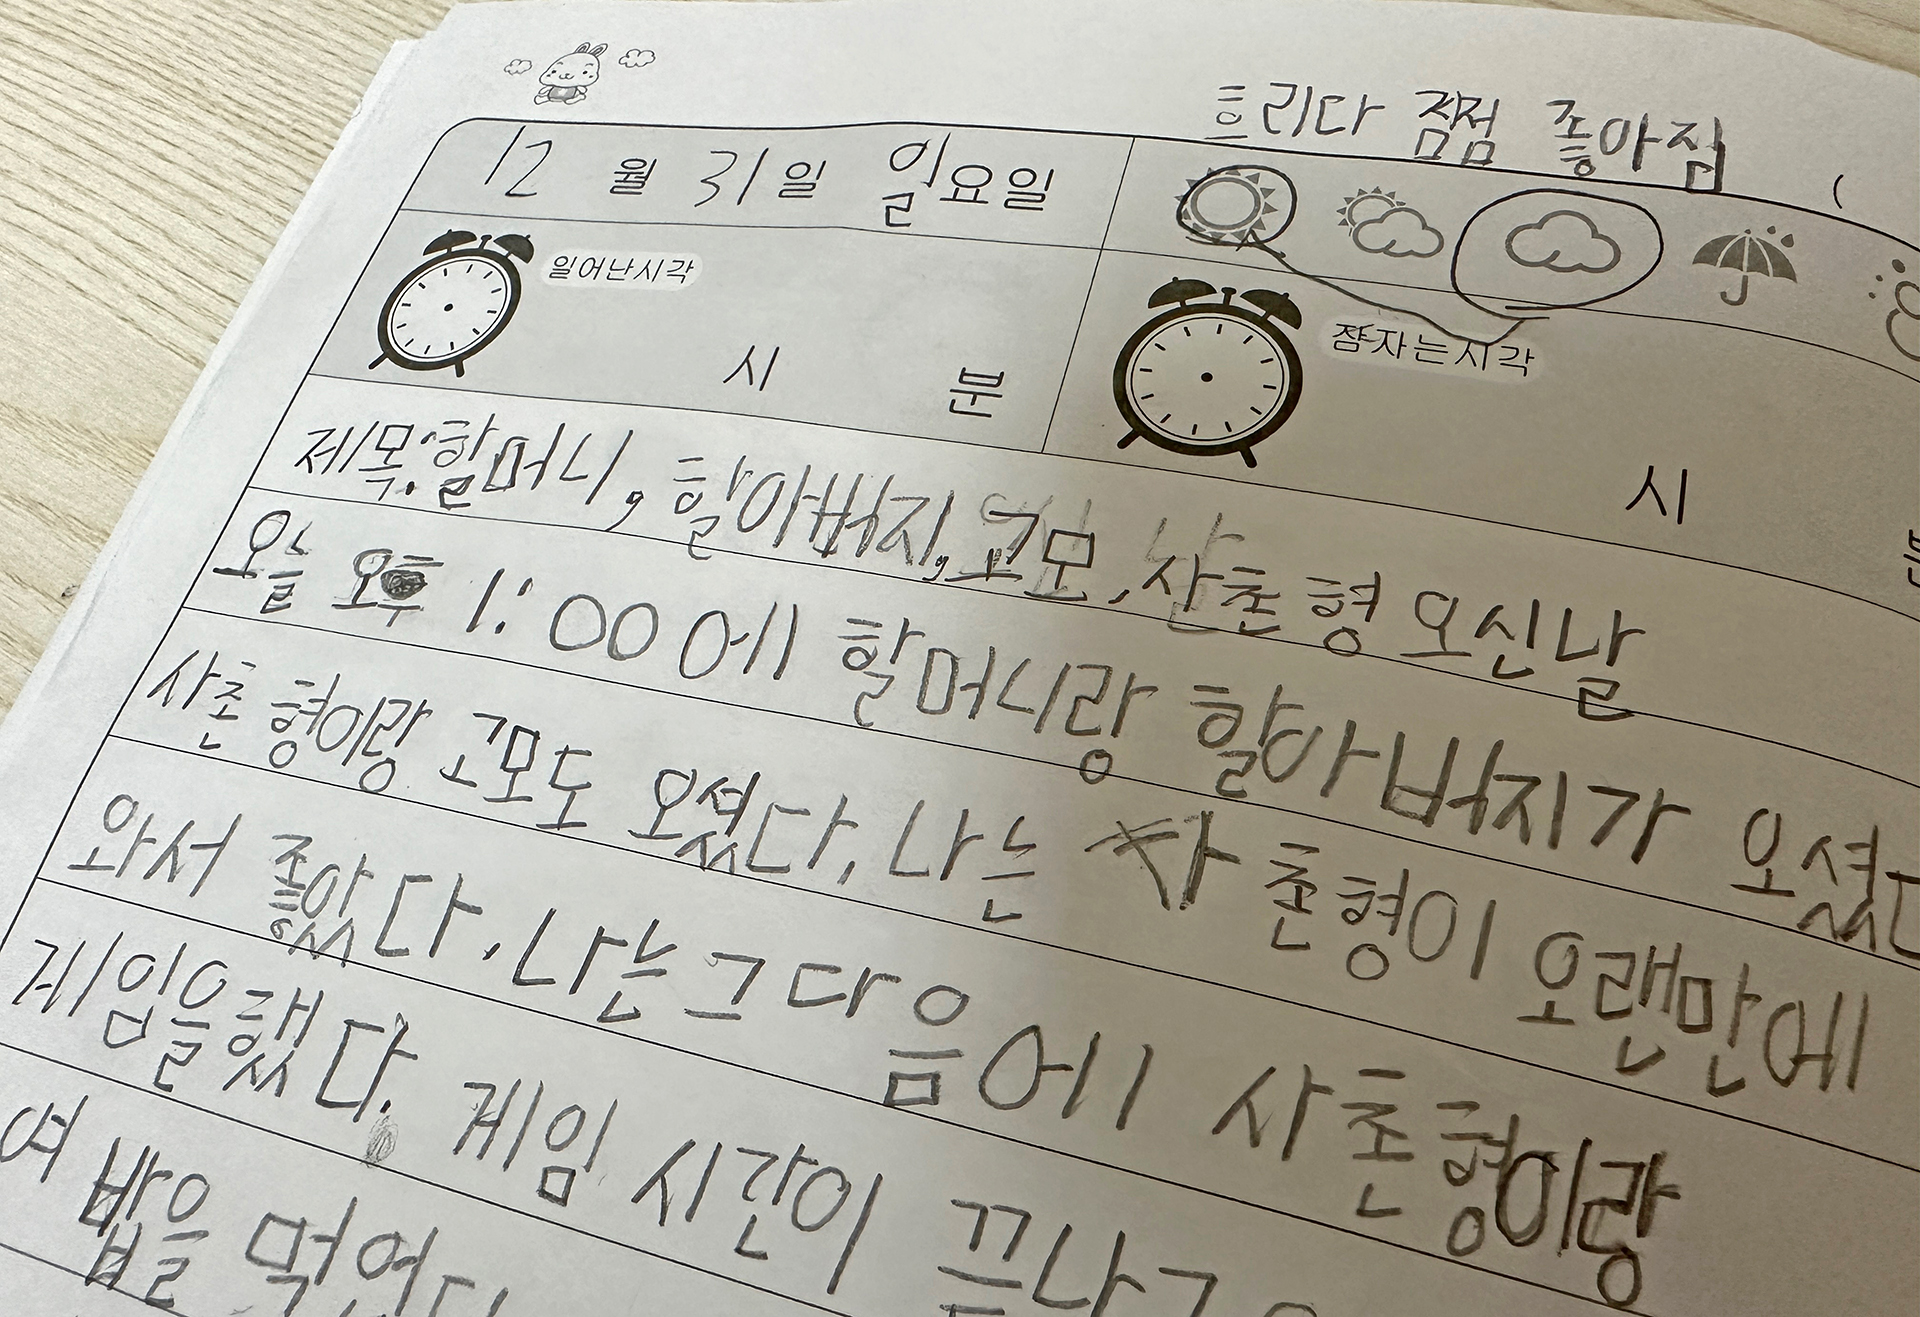 흐리다 점점 좋아짐
12 월 31 일 일요일
일어난시각
시 분
잠자는시각
시
제목:할머니, 할아버지,고모,사촌형 오신날
오늘 오후 1:00에 할머니랑 할아버지가 오셨다
사촌형이랑 고모도 오셨다. 나는 사촌형이 오랜만에
와서 좋았다. 나는그다음에 사촌형이랑
게임을했다. 게임 시간이 끝나고
여 밥을 먹었다